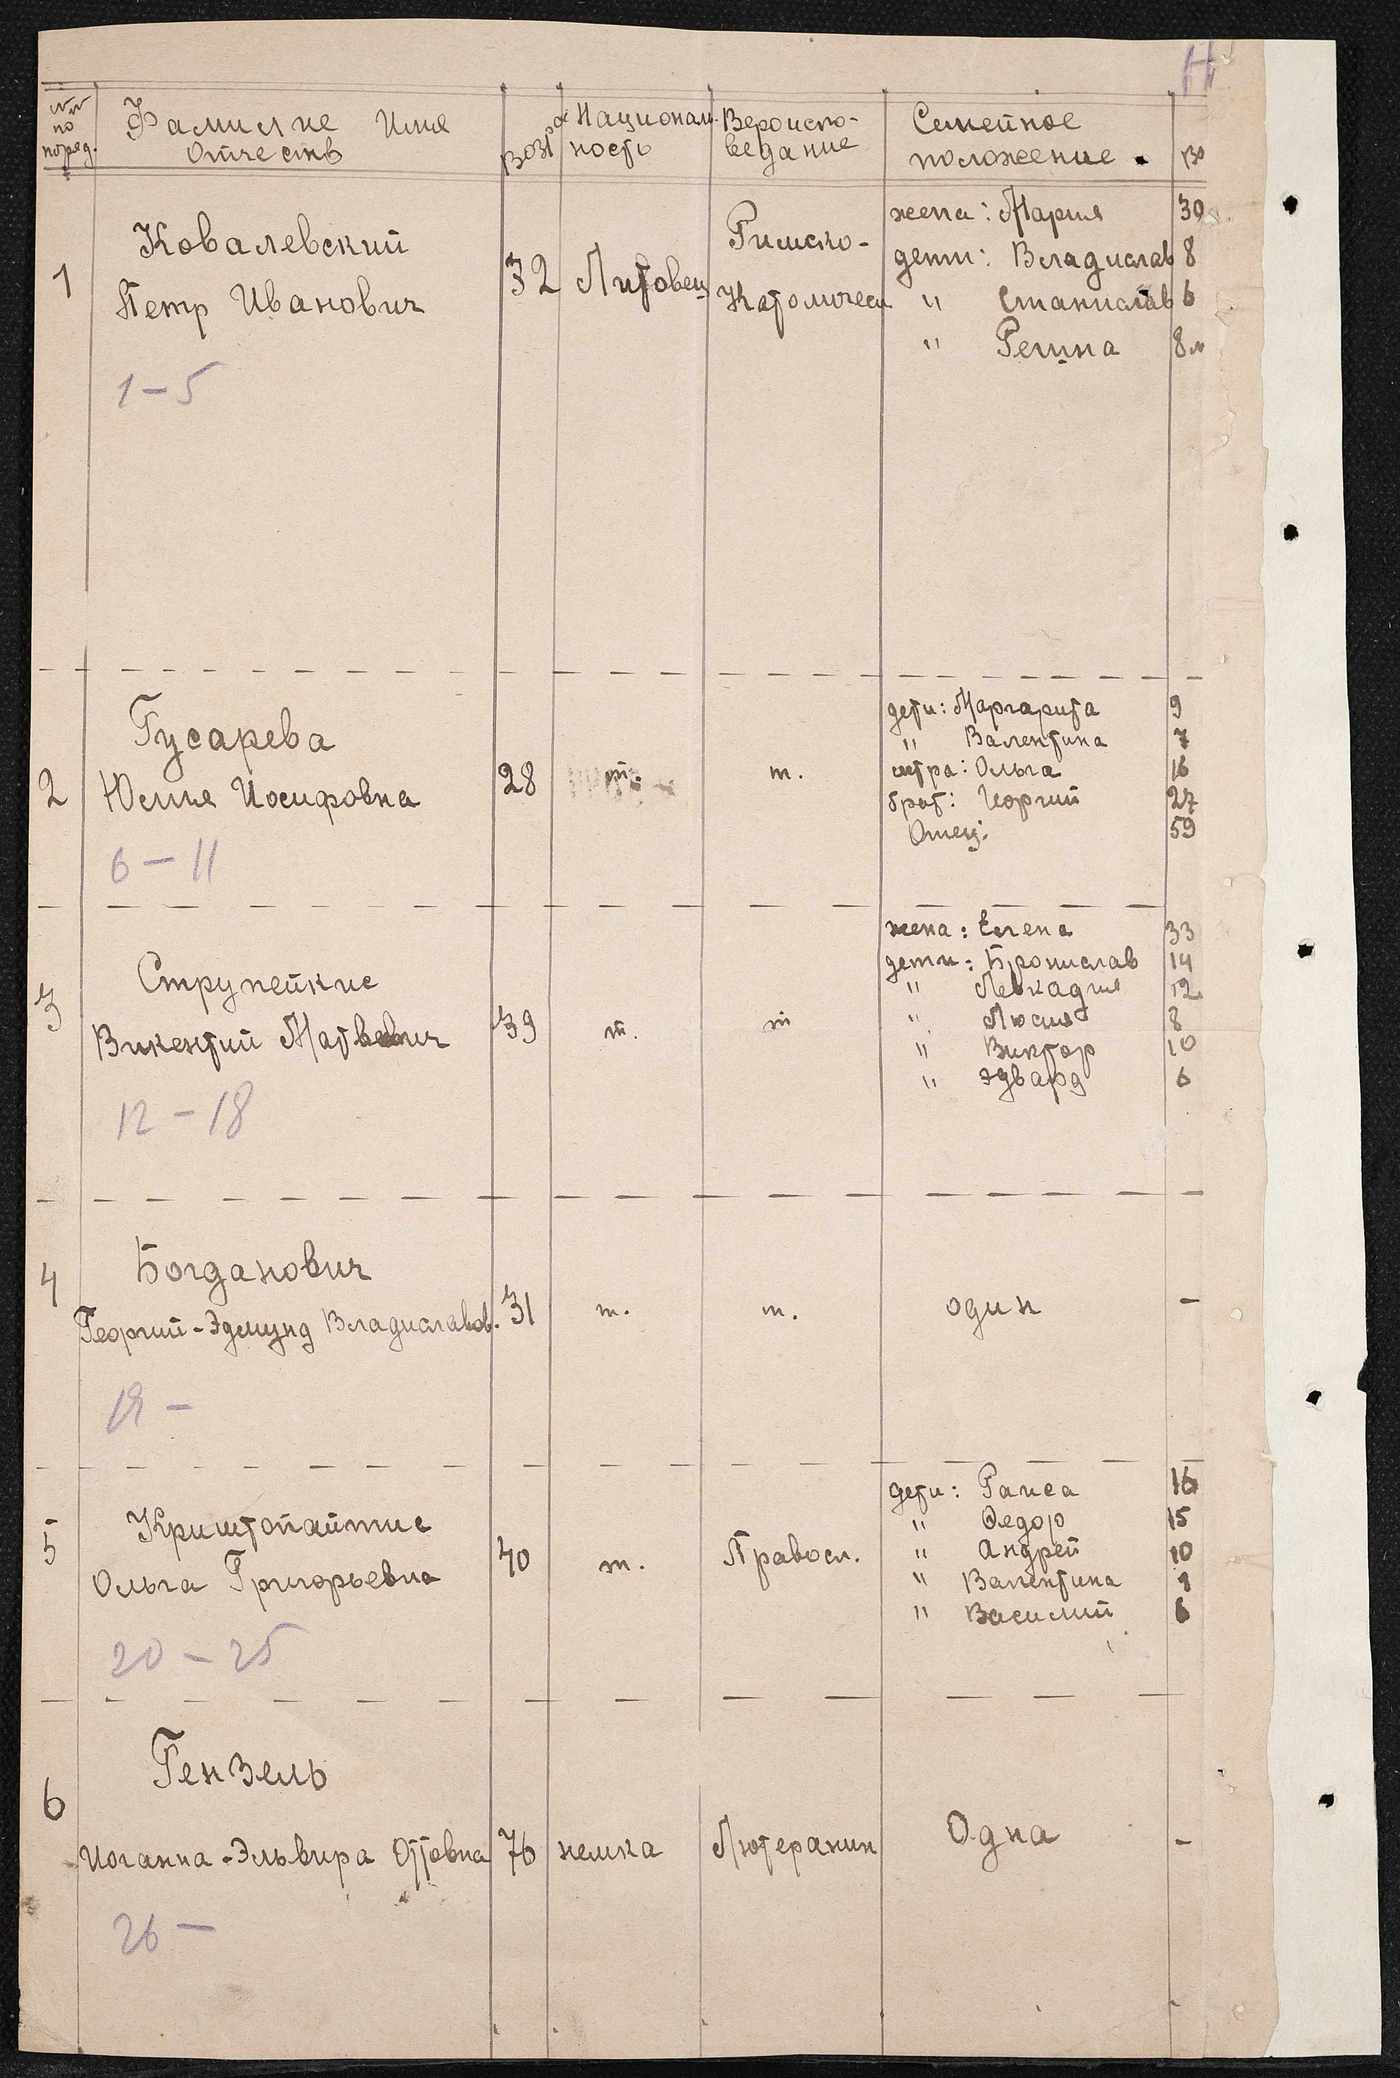 №№ по поряд.
Фамилие Имя Отчеств
Возр
Националь-
ность
Вероиспо-
ведание
Семейное
положение
Во
1
Ковалевский
Петр Иванович
32
Литовец
Римско-
Католическ
жена: Мария 30
дети: Владислав 8
" Станислав 6
" Регина 8 м
1 – 5
2
Гусарева
Юлия Иосифовна
28
т.
т.
дети: Маргарита 9
" Валентина 7
сестра: Ольга 16
брат: Георгий 27
Отец: 59
6 – 11
3
Струпейкис
Викентий Матвевич
39
т.
т
жена: Елена 33
дети: Бронислав 14
" Леокадия 12
" Люсия 8
" Виктор 10
" Эдвард 6
12 – 18
4
Богданович
Георгий-Эдмунд Владиславов.
31
т.
т.
один –
19 –
5
Криштопайтис
Ольга Григорьевна
40
т.
Правосл.
дети: Раиса 16
" Федор 15
" Андрей 10
" Валентина
" Василий 6
20 – 25
6
Гензель
Иоганна-Эльвира Оттовна
76
немка
Лютеранин
Одна –
26 –